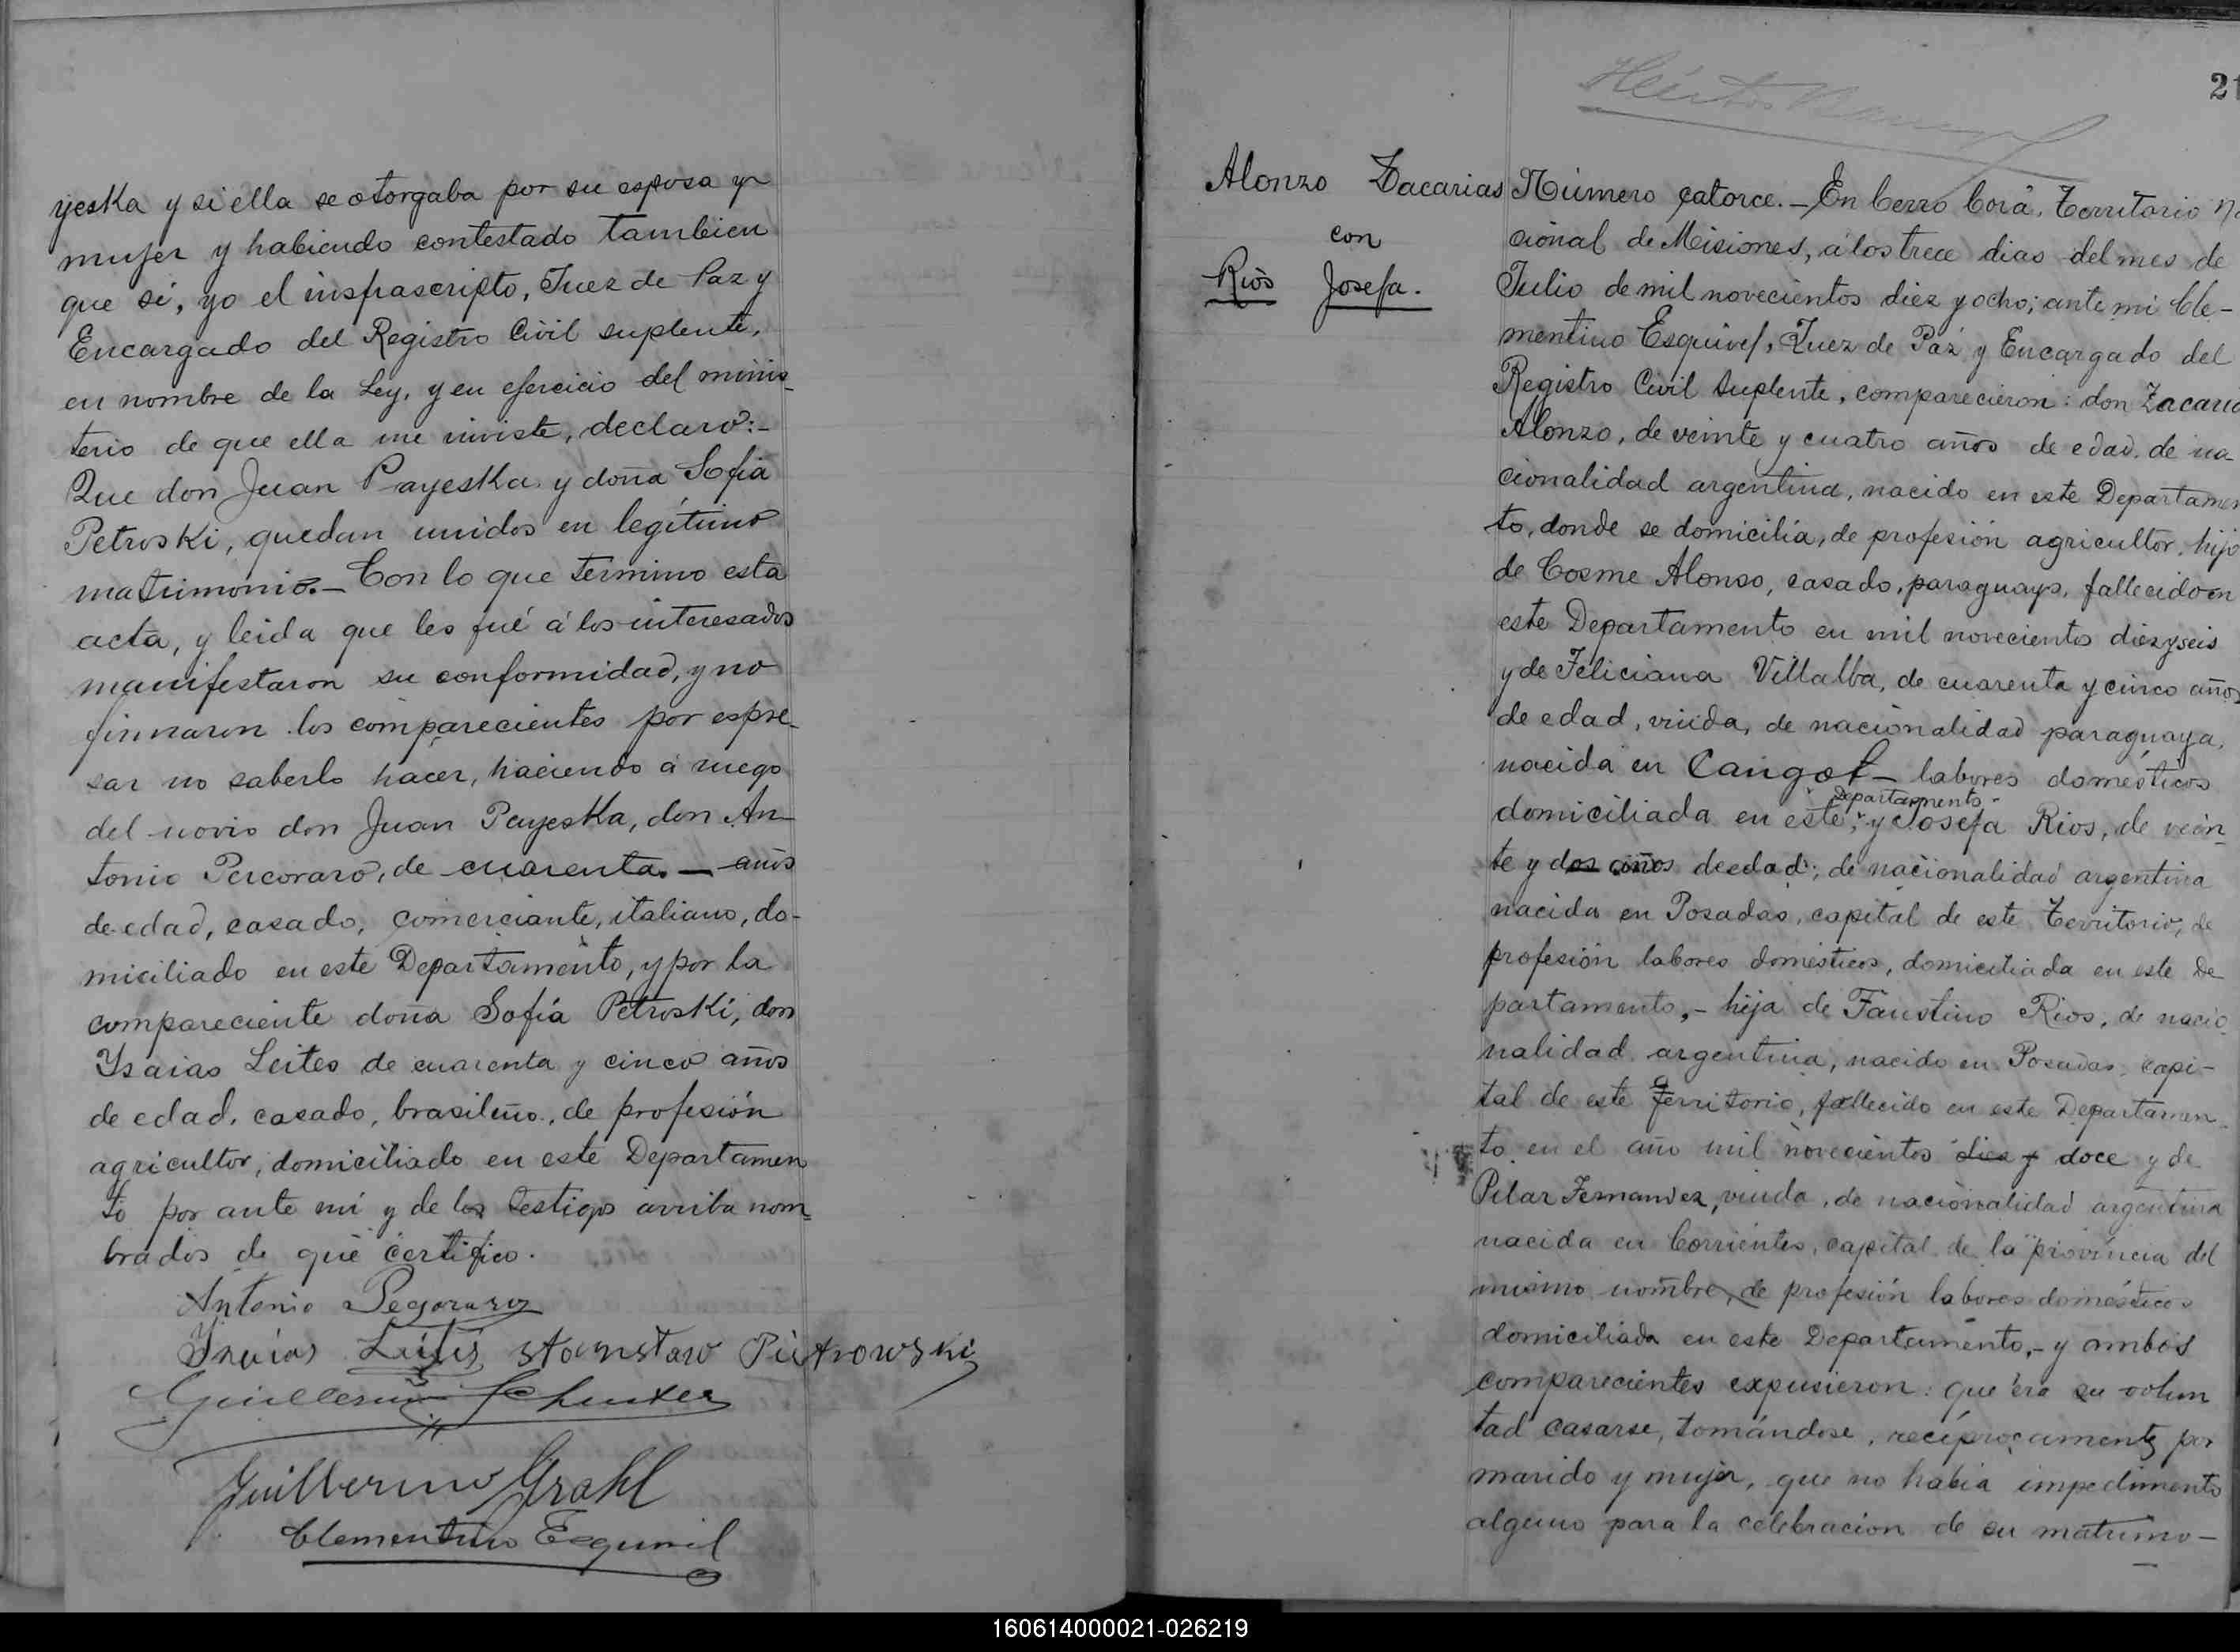 yeska y si ella se otorgaba por su esposa y
mujer y habiendo contestado tambien
que si, yo el insfrascripto, Juez de Paz y
Encargado del Registro Civil suplente,
en nombre de la Ley, y en ejercicio del minis-
terio de que ella me inviste, declaro:-
Que don Juan Payeska y doña Sofia
Petroski, quedan unidos en legítimo
matrimonio.- Con lo que termino esta
acta, y leida que les fué á los interesados
manifestaron su conformidad, y no
firmaron los comparecientes por espre-
sar no saberlo hacer, haciendo á ruego
del novio don Juan Payeska, don An-
tonio Percoraro, de cuarenta.- años
de edad, casado, comerciante, italiano, do-
miciliado en este Departamento, y por la
compareciente doña Sofía Petroski, don
Ysaias Leites de cuarenta y cinco años
de edad, casado, brasileño, de profesión
agricultor, domiciliado en este Departamen
to por ante mi y de los testigos arriba nom=
brados de que certifico.
Antonio Pegoraro
Isaias Leites Stanistaw Piotrowski
Guillermo Schuster
Guillermo Grahl
Clementino Esquivel
21
Alonzo Zacarias
con
Rios Josefa.
Número catorce.- En Cerro Corá, Territorio Na
cional de Misiones, á los trece dias del mes de
Julio de mil novecientos diez y ocho; ante mi Cle-
mentino Esquivel, Juez de Paz y Encargado del
Registro Civil Suplente, comparecieron: don Zacaria
Alonzo, de veinte y cuatro años de edad, de na-
cionalidad argentina, nacido en este Departamen
to, donde se domicilia, de profesión agricultor, hijo
de Cosme Alonso, casado, paraguayo, fallecido en
este Departamento en mil novecientos diez y seis
y de Feliciana Villalba, de cuarenta y cinco años
de edad, viuda, de nacionalidad paraguaya,
nacida en Cangó - labores domésticos
domiciliada en este, Departamento- y Josefa Rios, de vein-
te y dos años de edad; de nacionalidad argentina
nacida en Posadas, capital de este Territorio, de
profesión labores domésticos, domiciliada en este De
partamento,- hija de Faustino Rios, de nacio
nalidad argentina, nacido en Posadas, capi-
tal de este Territorio, fallecido en este Departamen
to en el año mil novecientos diez y doce y de
Pilar Fernandez, viuda, de nacionalidad argentina
nacida en Corrientes, capital de la provincia del
mismo nombre, de profesión labores domésticos
domiciliada en este Departamento,- y ambos
comparecientes expusieron: que era su volun
tad casarse, tomándose, recíprocamente por
marido y mujer, que no habia impedimento
alguno para la celebracion de su matrimo-
160614000021-026219